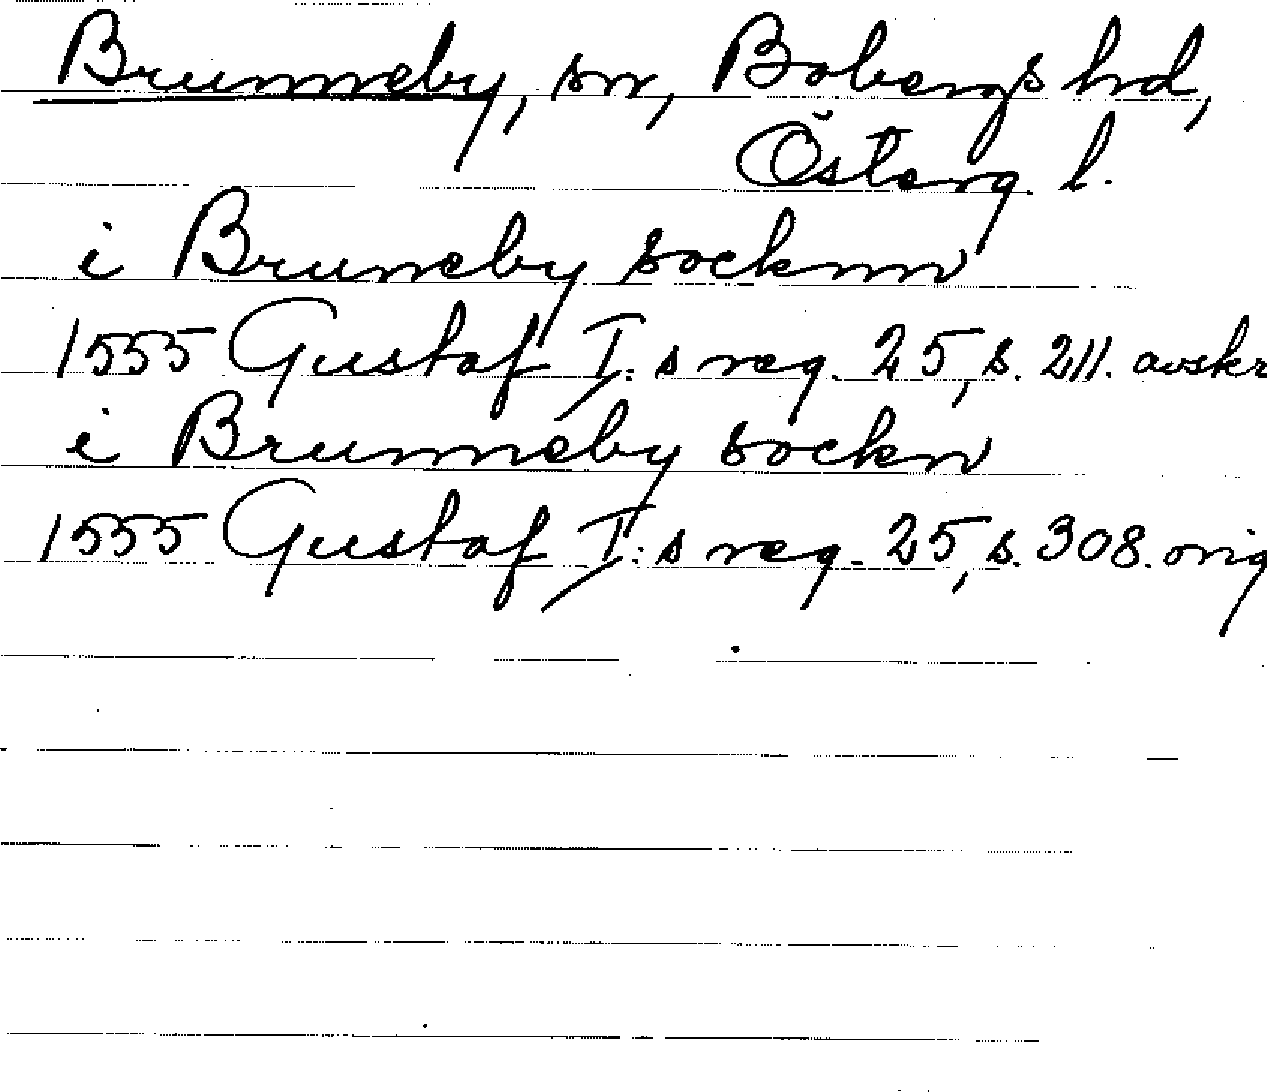 Brunneby, sn, Bobergs hd,
Österg. l.
i Bruneby socknn
1555 Gustaf I:s reg. 25, s. 211. avskr
i Brunneby sockn
1555 Gustaf I:s reg. 25, s. 308. orig